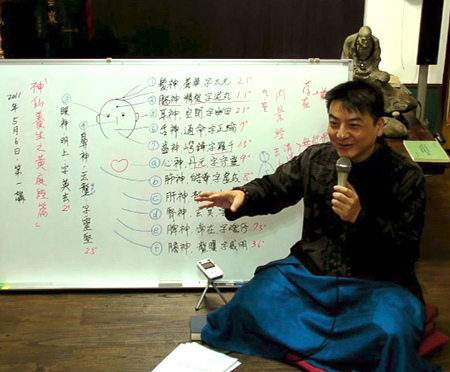 「神仙養生之黃庭經篇」
2011年5月6日 第一講
① 髮神 蒼華 字太元 2.1"
② 腦神 精根 字泥丸 1.1"
③ 眼神 明上 字英玄
④ 鼻神 玉壟 字靈堅 2.5"
⑤ 耳神 空閑 字幽田
⑥ 舌神 通命 字正綸 7"
⑦ 齒神 崿鋒 字羅千 1.5"
ⓐ 心神 丹元 字守靈 9"
ⓑ 肺神 皓華 字虛成 8"
ⓒ 肝神
ⓓ 腎神 玄冥
ⓔ 脾神 常在 字魂停 7.3"
ⓕ 膽神 龍曜 字威明 3.6"
內景經